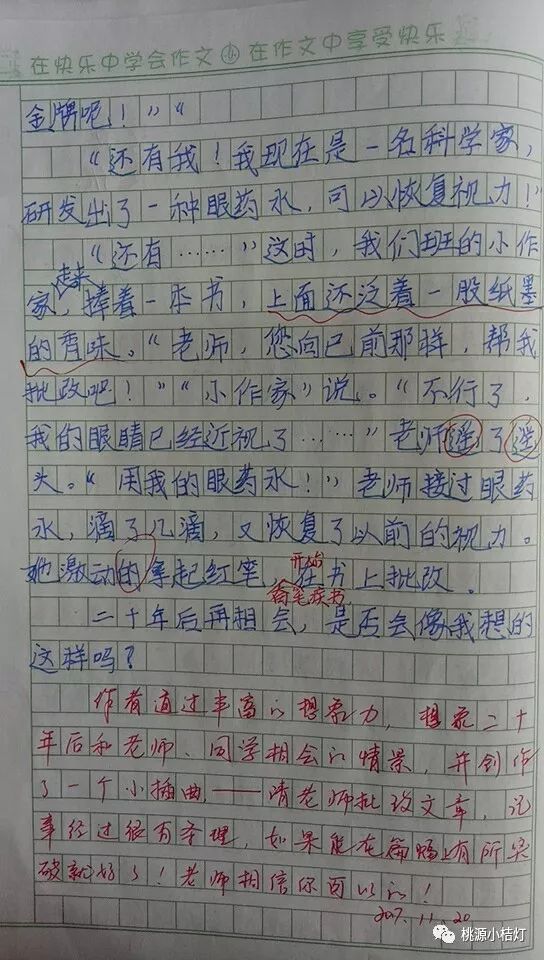 在快乐中学会作文 在作文中享受快乐
金牌吧！”“
“还有我！我现在是一名科学家，
研发出了一种眼药水，可以恢复视力！”
“还有……”这时，我们班的小作
走来
家，捧着一本书，上面还泛着一股纸墨
的香味。“老师，您向已前那样，帮我
批改吧！”“小作家”说。“不行了，
我的眼睛已经近视了……”老师遥了遥
头。“用我的眼药水！”老师接过眼药
水，滴了几滴，又恢复了以前的视力。
开始
她激动的拿起红笔，在书上批改。
奋笔疾书
二十年后再相会，是否会像我想的
这样吗？
作者通过丰富的想象力，想象二十
年后和老师、同学相会的情景，并创作
了一个小插曲——请老师批改文章，记
事经过很有条理，如果能在篇幅上有所突
破就好了！老师相信你可以的！
2017.11.20
桃源小桔灯